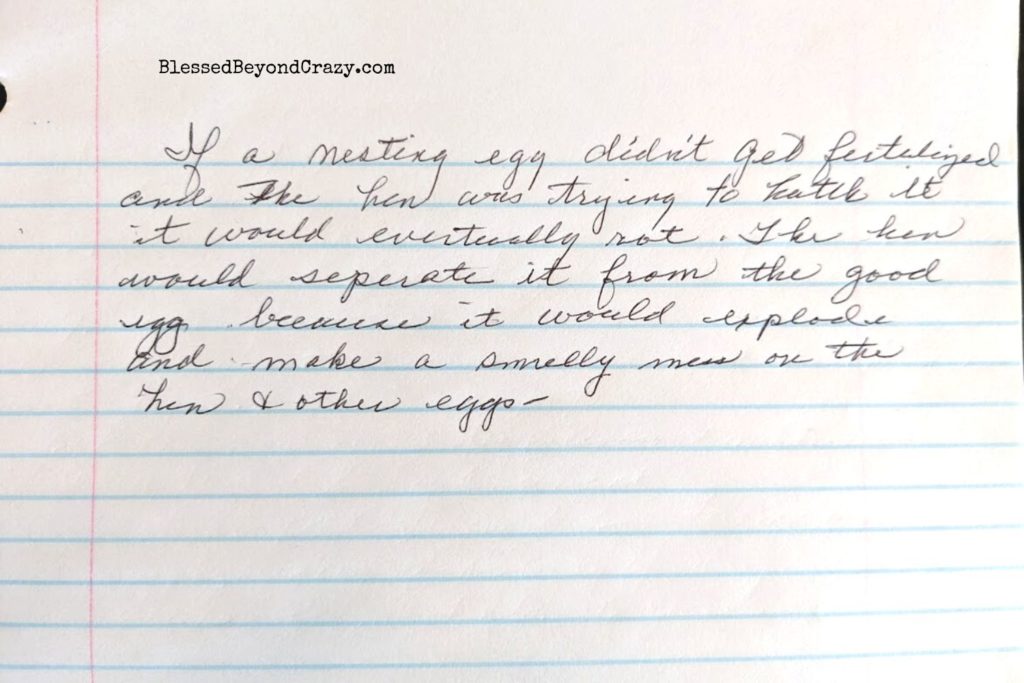 BlessedBeyondCrazy.com
If a nesting egg didn't get fertelized
and the hen was trying to hatch it
it would eventually rot. The hen
would seperate it from the good
egg because it would explode
and make a smelly mess on the
hen & other eggs-